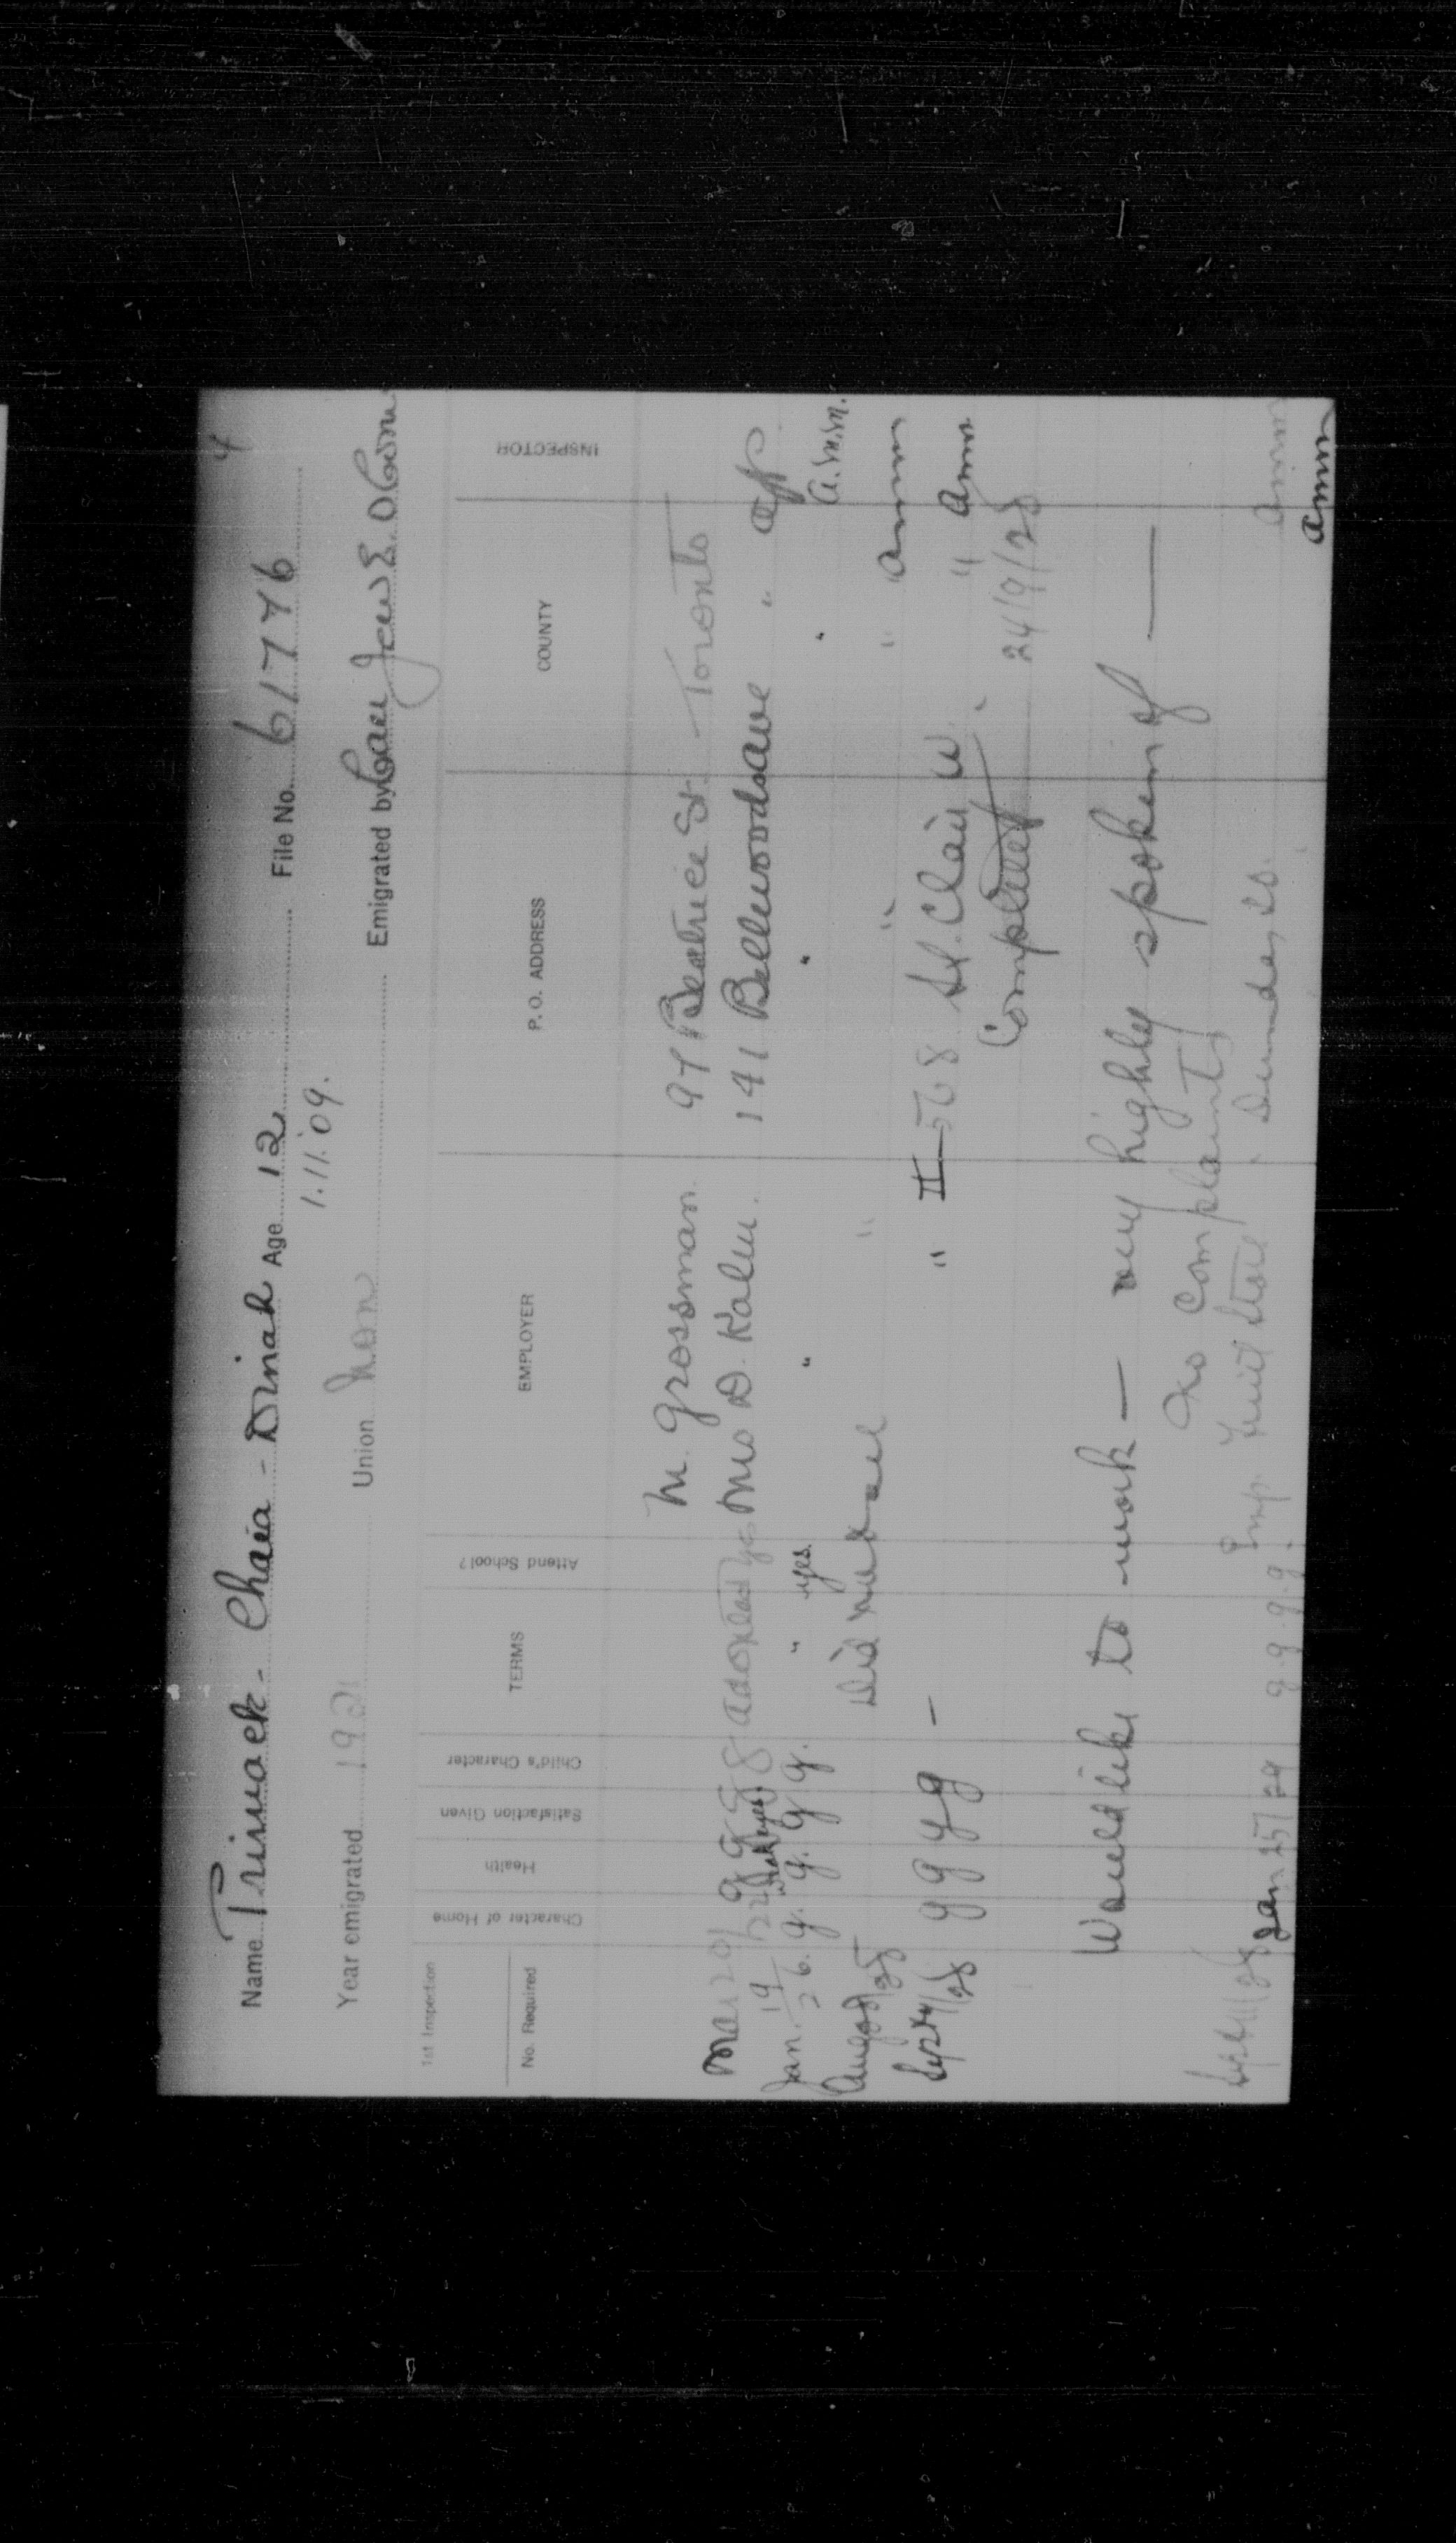 4
Name Trinack - Chaia - Dinah Age 12 File No. 61776
1.11.'09.
Year emigrated 1921 Union Emigrated by Can Jew E. O Com
1st Inspection
No. Required Character of Home Health Satisfaction Given Child's Character TERMS Attend School? EMPLOYER P. O. ADDRESS COUNTY INSPECTOR
M. Grossman 97 Beatrice St. - Toronto
Mar 20/22 g g g g adopted yes Mrs D. Kalm. 141 Bellwoods ave "
Jan. 19/26. g. g. g g. " yes. " " " A.M.M.
Aug 28/28 Did not see " " " " AMM
Sept 24/28 g g g g - " II 568 St. Clair W. " AMM
Completed 24/9/28
Would like to work — very highly spoken of —
No complaints
Sept 11/28 Emp. Fruit Store Dundas St. AMM
Jan 25/29 g. g. g. g. AMM